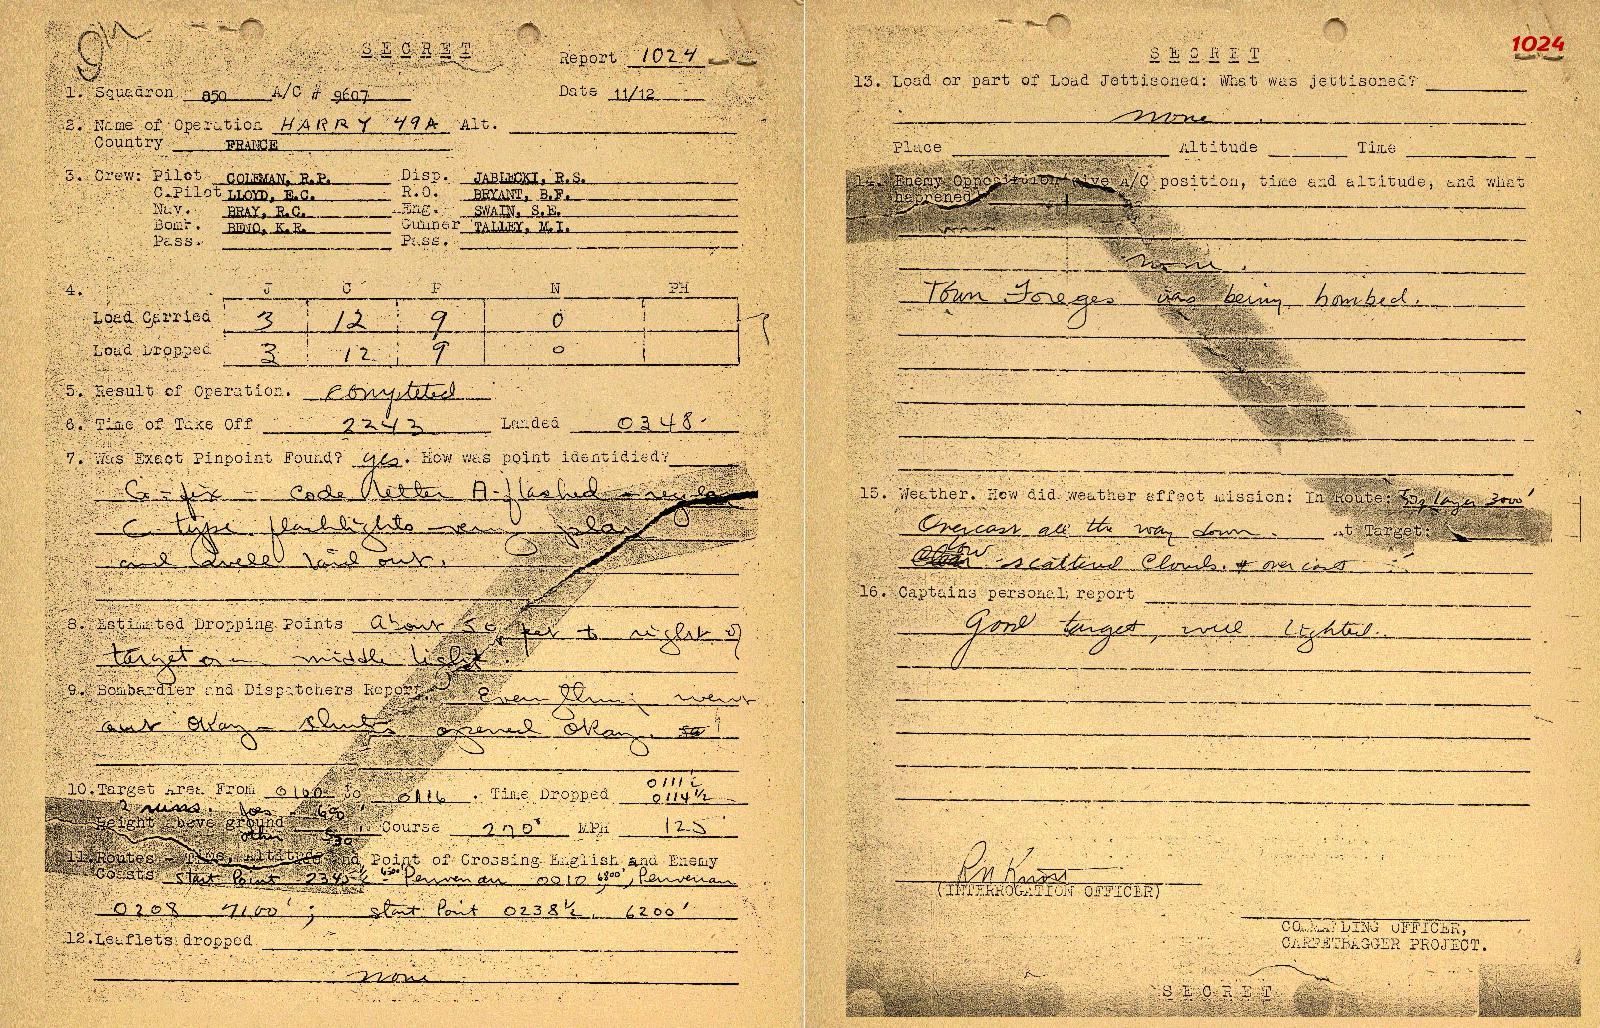 SECRET
Report 1024
1. Squadron 850 A/C # 9607 Date 11/12
2. Name of Operation HARRY 49A Alt.
Country FRANCE
3. Crew: Pilot COLEMAN, R.P. Disp. JABLECKI, R.S.
C.Pilot LLOYD, E.C. R.O. BRYANT, B.F.
Nav. BRAY, R.C. Eng. SWAIN, S.E.
Bomb. BENO, K.R. Gunner TALLEY, M.I.
Pass. Pass.
4. J C P N PH
Load Carried 3 12 9 0
Load Dropped 3 12 9 0
5. Result of Operation. Completed
6. Time of Take Off 2243 Landed 0348
7. Was Exact Pinpoint Found? yes. How was point identidied?
G-fix - code letter A-flashed -
C type flashlights very
and well laid out.
8. Estimated Dropping Points About 50 feet to right of
target on middle light.
9. Bombardier and Dispatchers Report. Everything went
out okay - chutes opened okay.
10. Target Area From 0100 To 0116. Time Dropped 0111½
0114½
2 runs. Joes - 600'
Height above ground other 530' Course 270° MPH 125
11. Routes - Time, Altitude and Point of Crossing English and Enemy
Coasts start Point 2345½ 6500' 0010 6800',
0208 7100'; start Point 0238½ 6200'
12. Leaflets dropped
none
SECRET
1024
13. Load or part of Load Jettisoned: What was jettisoned?
none.
Place Altitude Time
14. Enemy Opposition: Give A/C position, time and altitude, and what
happened
none.
Town Foreges was being bombed.
15. Weather. How did weather effect mission: In Route: layer 3000'
Overcast all the way down. At Target:
low scattered clouds. & overcast
16. Captains personal report
Good target, well lighted.
(INTERROGATION OFFICER)
COMMANDING OFFICER,
CARPETBAGGER PROJECT.
SECRET